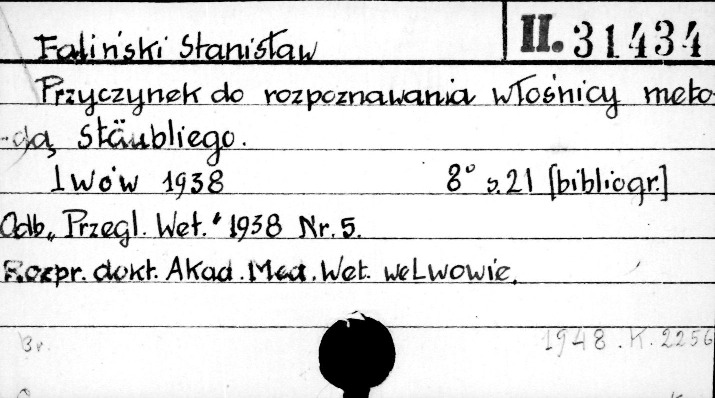 Faliński Stanisław II. 31434
Przyczynek do rozpoznawania włośnicy meto-
-dą Stäubliego.
Lwów 1938 8° s. 21 [bibliogr.]
Odb. "Przegl. Wet." 1938 Nr. 5.
Rozpr. dokt. Akad. Med. Wet. we Lwowie.
Br. 1948. K. 2256